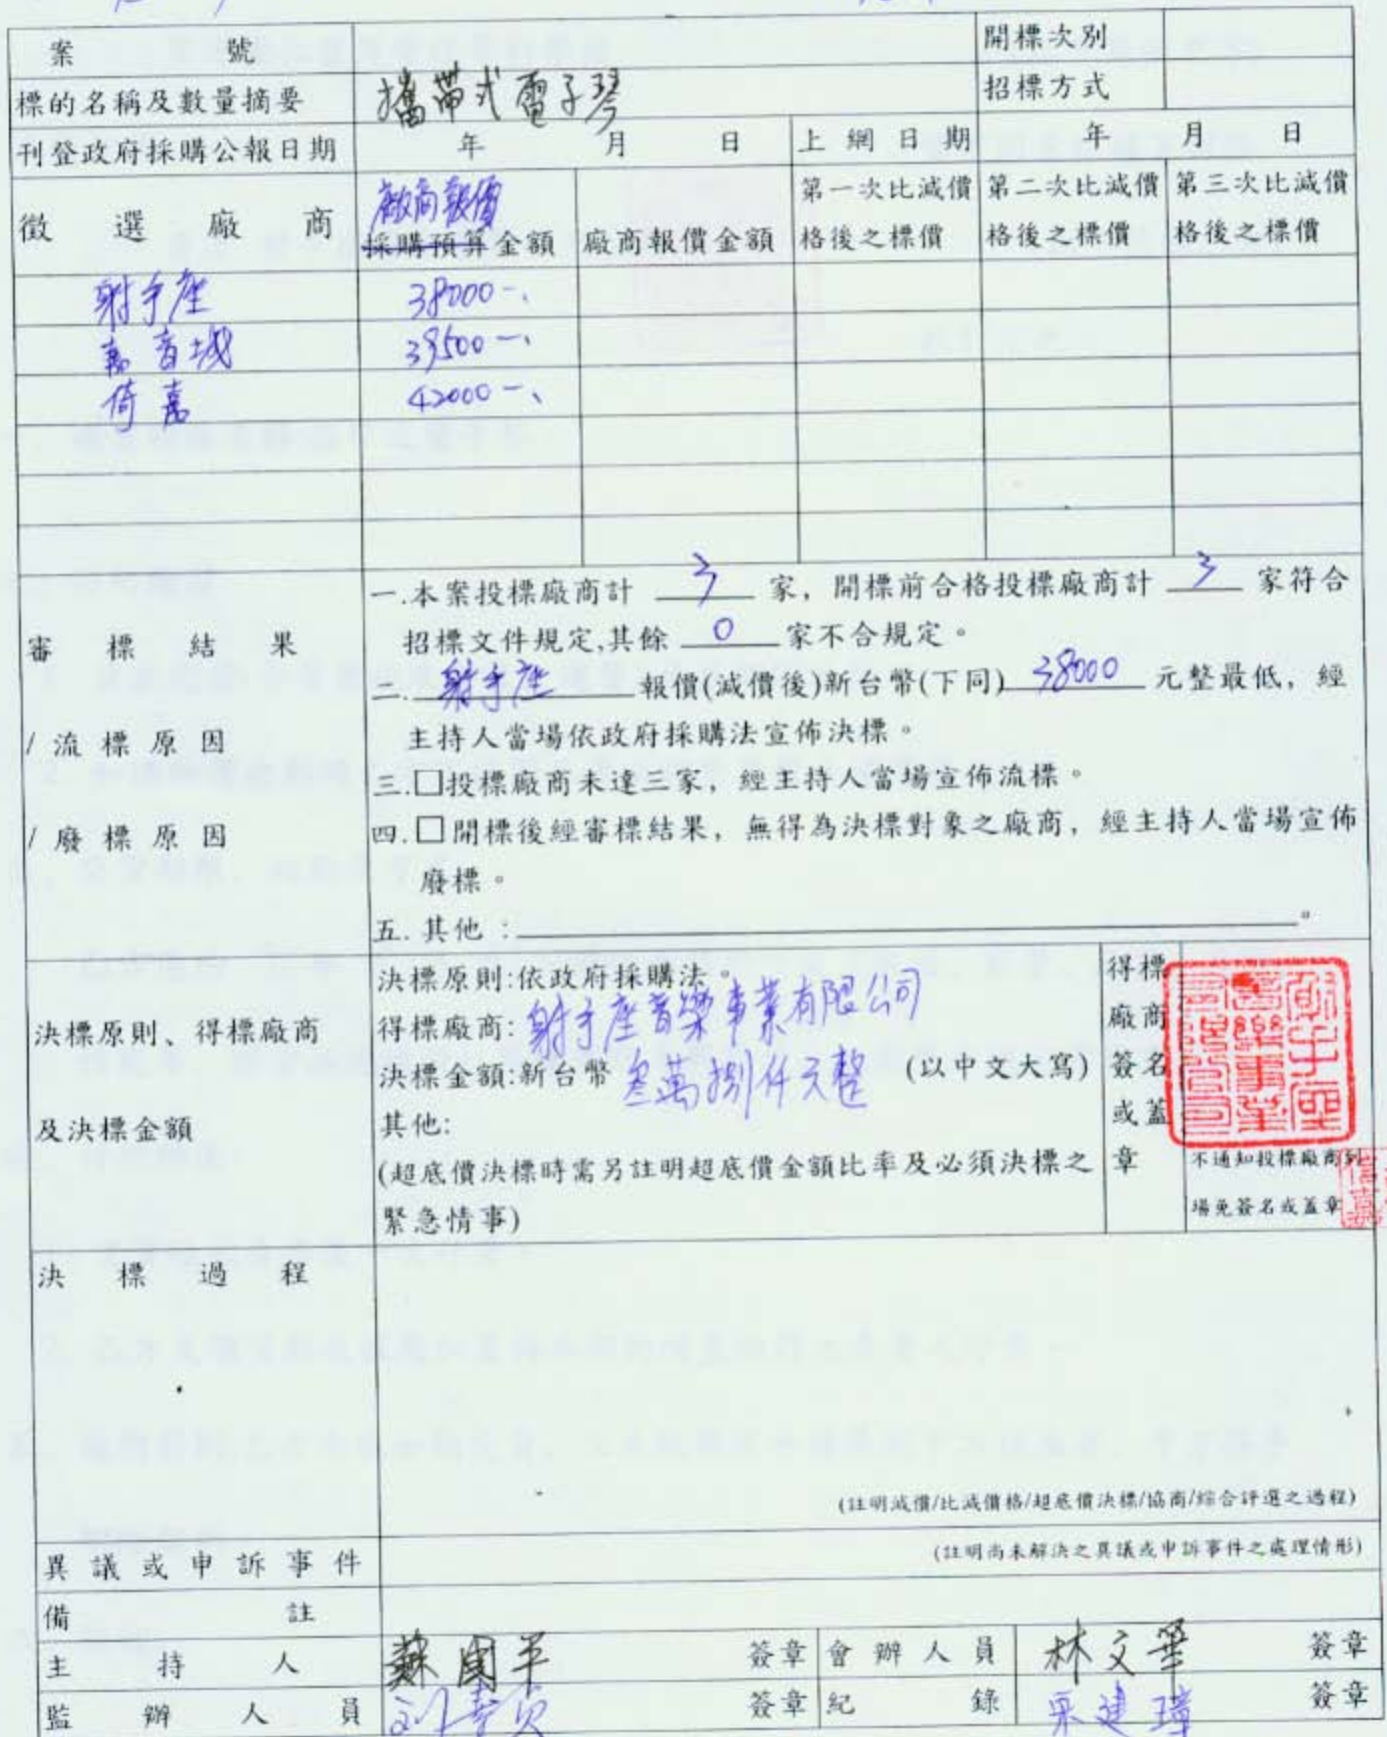 案號 開標次別
標的名稱及數量摘要 攜帶式電子琴 招標方式
刊登政府採購公報日期 年 月 日 上網日期 年 月 日
徵選廠商 廠商報價 採購預算金額 廠商報價金額 第一次比減價格後之標價 第二次比減價格後之標價 第三次比減價格後之標價
射手座 38000-、
嘉音城 39500-、
倚嘉 42000-、
審標結果
/流標原因
/廢標原因
一.本案投標廠商計 3 家，開標前合格投標廠商計 3 家符合
招標文件規定,其餘 0 家不合規定。
二.射手座 報價(減價後)新台幣(下同) 38000 元整最低，經
主持人當場依政府採購法宣佈決標。
三.□投標廠商未達三家，經主持人當場宣佈流標。
四.□開標後經審標結果，無得為決標對象之廠商，經主持人當場宣佈
廢標。
五.其他：。
決標原則、得標廠商
及決標金額
決標原則:依政府採購法。
得標廠商:射手座音樂事業有限公司
決標金額:新台幣 叁萬捌仟元整 (以中文大寫)
其他:
(超底價決標時需另註明超底價金額比率及必須決標之
緊急情事)
得標
廠商
簽名
或蓋
章
射手座音樂事業有限公司
不通知投標廠商到
場免簽名或蓋章
決標過程
(註明減價/比減價格/超底價決標/協商/綜合評選之過程)
異議或申訴事件 (註明尚未解決之異議或申訴事件之處理情形)
備註
主持人 蘇國平 簽章 會辦人員 林文華 簽章
監辦人員 簽章 紀錄 簽章